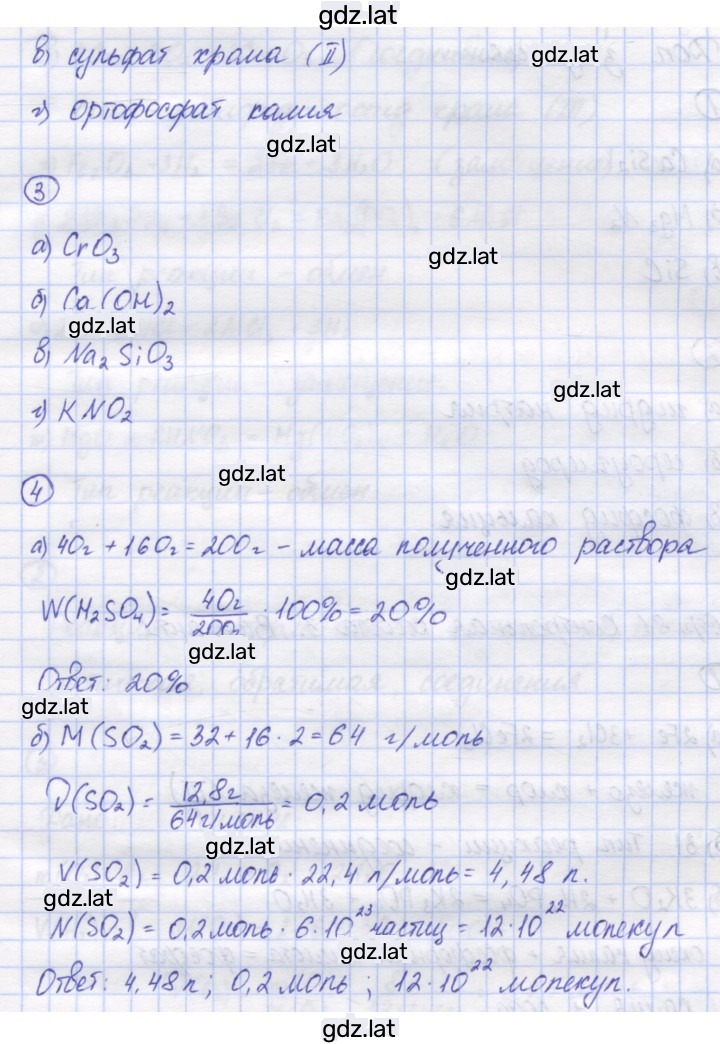 gdz.lat
в) сульфат хрома (II)
gdz.lat
г) ортофосфат калия
gdz.lat
3
а) CrO₃
gdz.lat
б) Ca(OH)₂
gdz.lat
в) Na₂SiO₃
gdz.lat
г) KNO₂
gdz.lat
4
а) 40г + 160г = 200г - масса полученного раствора
gdz.lat
W(H₂SO₄) = 40г/200г · 100% = 20%
gdz.lat
Ответ: 20%
gdz.lat
б) M(SO₂) = 32 + 16 · 2 = 64 г/моль
ν(SO₂) = 12,8г/64г/моль = 0,2 моль
gdz.lat
V(SO₂) = 0,2 моль · 22,4 л/моль = 4,48 л.
gdz.lat
N(SO₂) = 0,2 моль · 6 · 10²³ частиц = 12 · 10²² молекул
gdz.lat
Ответ: 4,48 л; 0,2 моль; 12 · 10²² молекул.
gdz.lat